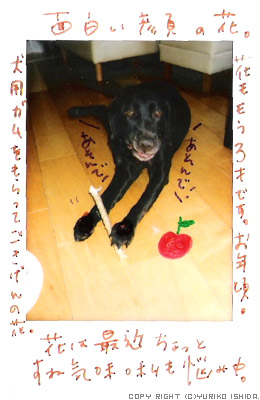 面白い顔の花。
花ももう3才です。お年頃。
犬用ガムをもらってごきげんの花。
あそんで!
あそんで!
花は最近ちょっと
すね気味 も悩み中。
COPY RIGHT (C)YURIKO ISHIDA.